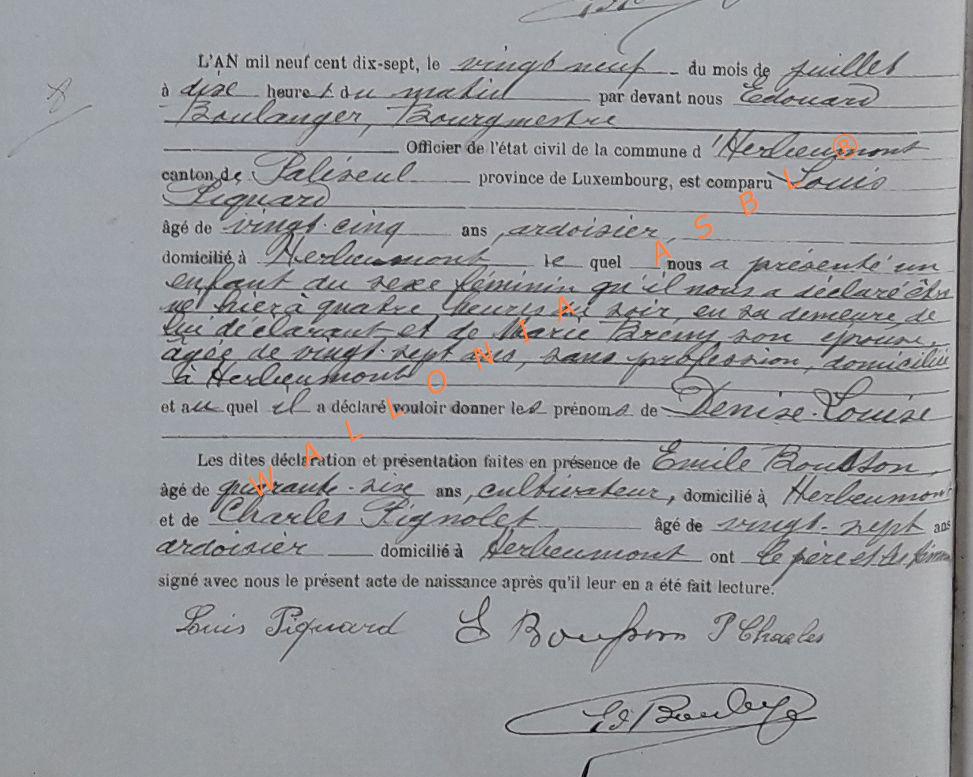 8
L'AN mil neuf cent dix-sept, le vingt neuf du mois de juillet
à dix heures du matin par devant nous Edouard
Boulanger, Bourgmestre
Officier de l'état civil de la commune d'Herbeumont
canton de Paliseul province de Luxembourg, est comparu Louis
Piquard
âgé de vingt-cinq ans, ardoisier,
domicilié à Herbeumont le quel nous a présenté un
enfant du sexe féminin qu'il nous a déclaré être
né hier à quatre heures du soir, en sa demeure de
lui déclarant et de Marie Brémy son épouse,
âgée de vingt-sept ans, sans profession, domiciliée
à Herbeumont
et au quel il a déclaré vouloir donner les prénoms de Denise-Louise
Les dites déclaration et présentation faites en présence de Emile Bousson,
âgé de quarante-six ans, cultivateur, domicilié à Herbeumont
et de Charles Pignolet, âgé de vingt-sept ans
ardoisier domicilié à Herbeumont ont le père et les témoins
signé avec nous le présent acte de naissance après qu'il leur en a été fait lecture.
Louis Piquard E Bousson P Charles
Ed Boulanger
WALLONIA ASBL ®